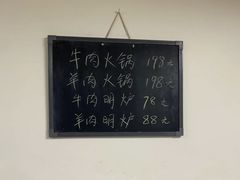 牛肉火锅 198元
羊肉火锅 198元
牛肉明炉 78元
羊肉明炉 88元